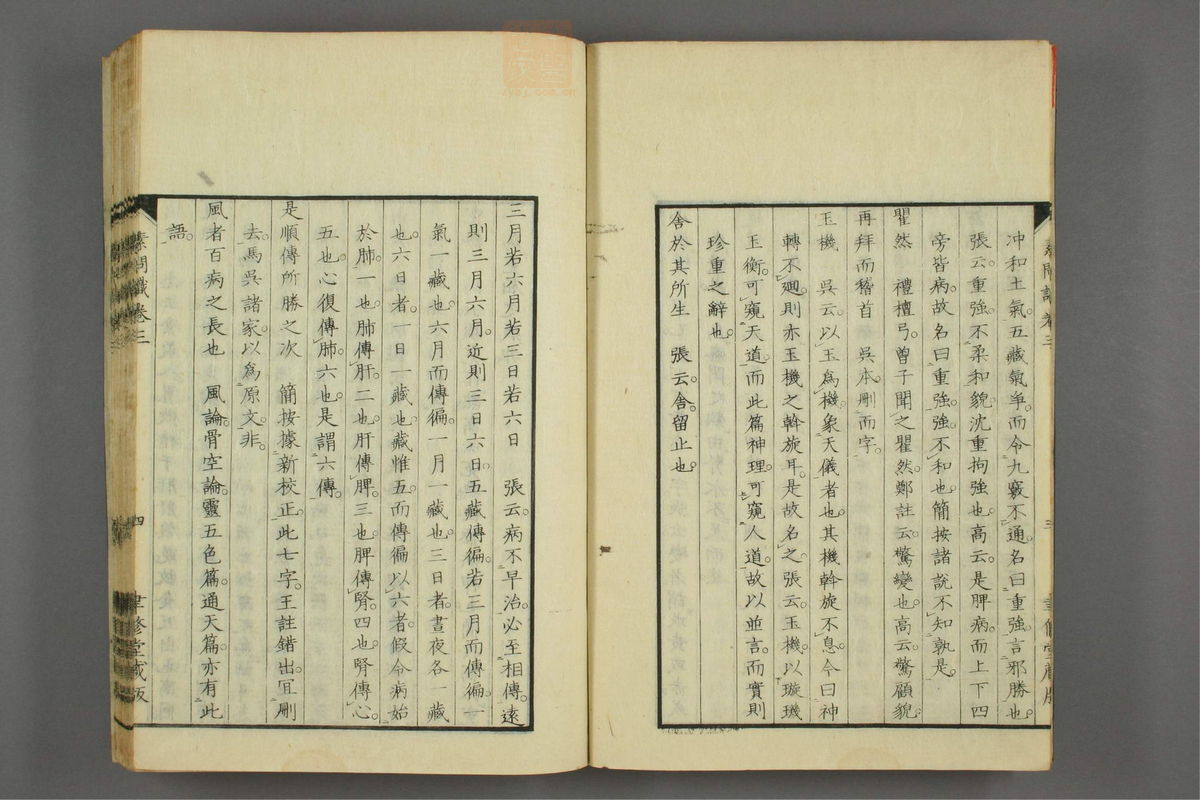 冲和土氣。五藏氣爭。而令九竅不通。名曰重強。言邪勝也。
張云。重強。不柔和貌。沈重拘強也。高云。是脾病而上下四
旁皆病。故名曰重強。強。不和也。簡按諸說不知孰是。
瞿然　禮檀弓。曾子聞之瞿然。鄭註云。驚變也。高云。驚顧貌。
再拜而稽首　吳本。刪而字。
玉機　吳云。以玉為機。象天儀者也。其機斡旋不息。今曰神
轉不廻。則亦玉機之斡旋耳。是故名之。張云。玉機。以璇璣
玉衡。可窺天道。而此篇神理。可窺人道。故以並言。而實則
珍重之辭也。
舍於其所生　張云。舍。留止也。
三月若六月若三日若六日　張云。病不早治。必至相傳。遠
則三月六月。近則三日六日。五藏傳徧。若三月而傳徧。一
氣一藏也。六月而傳徧。一月一藏也。三日者。晝夜各一藏
也。六日者。一日一藏也。藏惟五而傳徧以六者。假令病始
於肺。一也。肺傳肝。二也。肝傳脾。三也。脾傳腎。四也。腎傳心。
五也。心復傳肺。六也。是謂六傳。
是順傳所勝之次　簡按據新校正。此七字。王註錯出。宜刪
去。馬吳諸家。以為原文。非。
風者百病之長也　風論。骨空論。靈五色篇。通天篇。亦有此
語。
素問識卷三
四
聿修堂藏版
素問識 卷三
聿修堂藏版